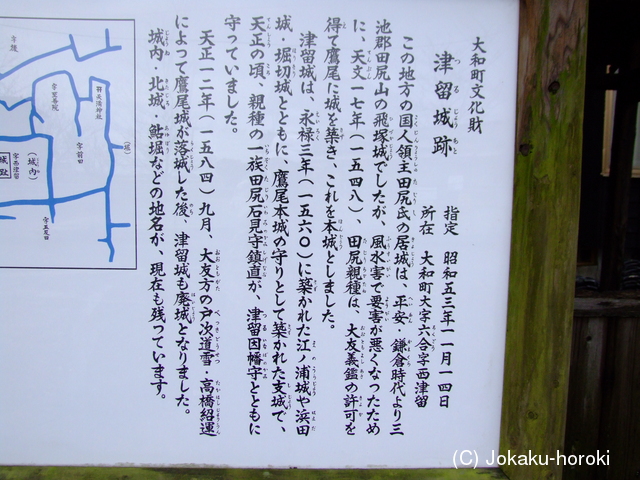 大和町文化財
津留城跡
指定 昭和五三年一一月一四日
所在 大和町大字六合字西津留
この地方の国人領主田尻氏の居城は、平安・鎌倉時代より三
池郡田尻山の飛塚城でしたが、風水害で要害が悪くなったため
に、天文一七年(一五四八)、田尻親種は、大友義鑑の許可を
得て鷹尾に城を築き、これを本城としました。
津留城は、永禄三年(一五六〇)に築かれた江ノ浦城や浜田
城・堀切城とともに、鷹尾本城の守りとして築かれた支城で、
天正の頃、親種の一族田尻石見守鎮直が、津留因幡守とともに
守っていました。
天正一二年(一五八四)九月、大友方の戸次道雪・高橋紹運
によって鷹尾城が落城した後、津留城も廃城となりました。
城内・北城・鮎堀などの地名が、現在も残っています。
字前田
(城内)
字西津留
城跡
(C) Jokaku-horoki